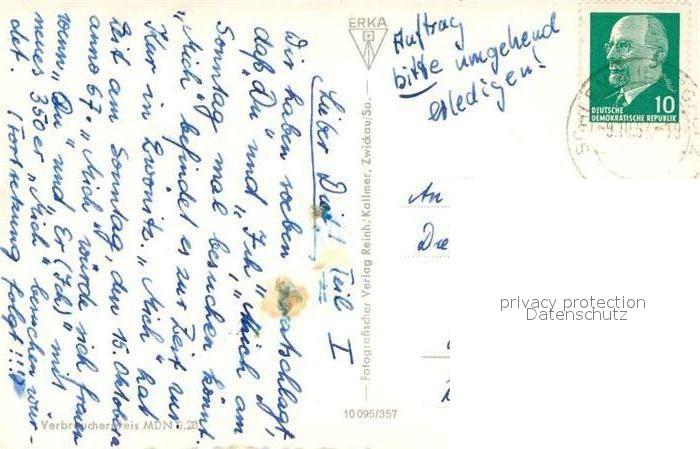 ERKA
Auftrag
bitte umgehend
erledigen!
DEUTSCHE
DEMOKRATISCHE REPUBLIK
10
Lieber Die! Teil I
Wir haben soeben ratschlagt,
daß „Du" und „Ich" „Mich" am
Sonntag mal besuchen könnt.
„Mich" befindet es zur Zeit zur
Kur in Zwönitz. „Mich" hat
Zeit am Sonntag, den 15. Oktober
anno 67. „Mich" würde sich freuen
wenn „Du" und Er (Ich)" mit
neues 350er „Mich" besuchen wür-
det. (Fortsetzung folgt!!!)
An
Die
Fotografischer Verlag Reinh. Kallmer, Zwickau/Sa.
10 095/357
Verbraucherpreis MDN 0,20
privacy protection
Datenschutz